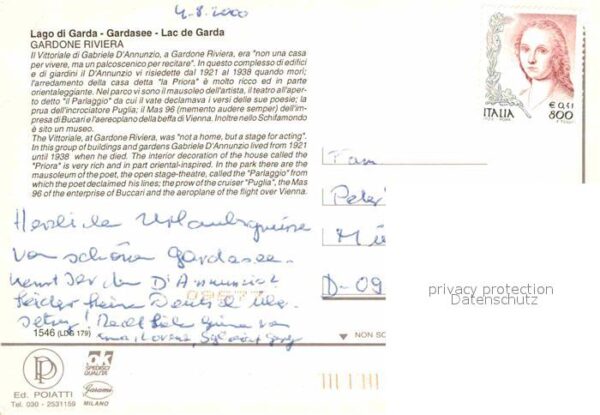 4.8.2000
Lago di Garda - Gardasee - Lac de Garda
GARDONE RIVIERA
Il Vittoriale di Gabriele D'Annunzio, a Gardone Riviera, era "non una casa
per vivere, ma un palcoscenico per recitare". In questo complesso di edifici
e di giardini il D'Annunzio vi risiedette dal 1921 al 1938 quando morì;
l'arredamento della casa detta "la Priora" è molto ricco ed in parte
orientaleggiante. Nel parco vi sono il mausoleo dell'artista, il teatro all'aper-
to detto "il Parlaggio" da cui il vate declamava i versi delle sue poesie; la
prua dell'incrociatore Puglia; il Mas 96 (memento audere semper) dell'im-
presa di Buccari e l'aereoplano della beffa di Vienna. Inoltre nello Schifamondo
è sito un museo.
The Vittoriale, at Gardone Riviera, was "not a home, but a stage for acting".
In this group of buildings and gardens Gabriele D'Annunzio lived from 1921
until 1938 when he died. The interior decoration of the house called the
"Priora" is very rich and in part oriental-inspired. In the park there are the
mausoleum of the poet, the open stage-theatre, called the "Parlaggio" from
which the poet declaimed his lines; the prow of the cruiser "Puglia", the Mas
96 of the enterprise of Buccari and the aeroplane of the flight over Vienna.
ITALIA
€ 0,41
800
Fam
Peter
Mü
D-09
Herzliche Urlaubsgrüsse
vom schönen Gardasee.
kennt Ihr den D'Annunzio?
Leider keine Deutsch Über-
setzung! Recht liebe Grüsse von
1546 (LDG 179)
privacy protection
Datenschutz
NON SC
PD
Ed. POIATTI
Tel. 030 - 2531159
ok
SPEDISCI
QUALITÀ
Garami
MILANO